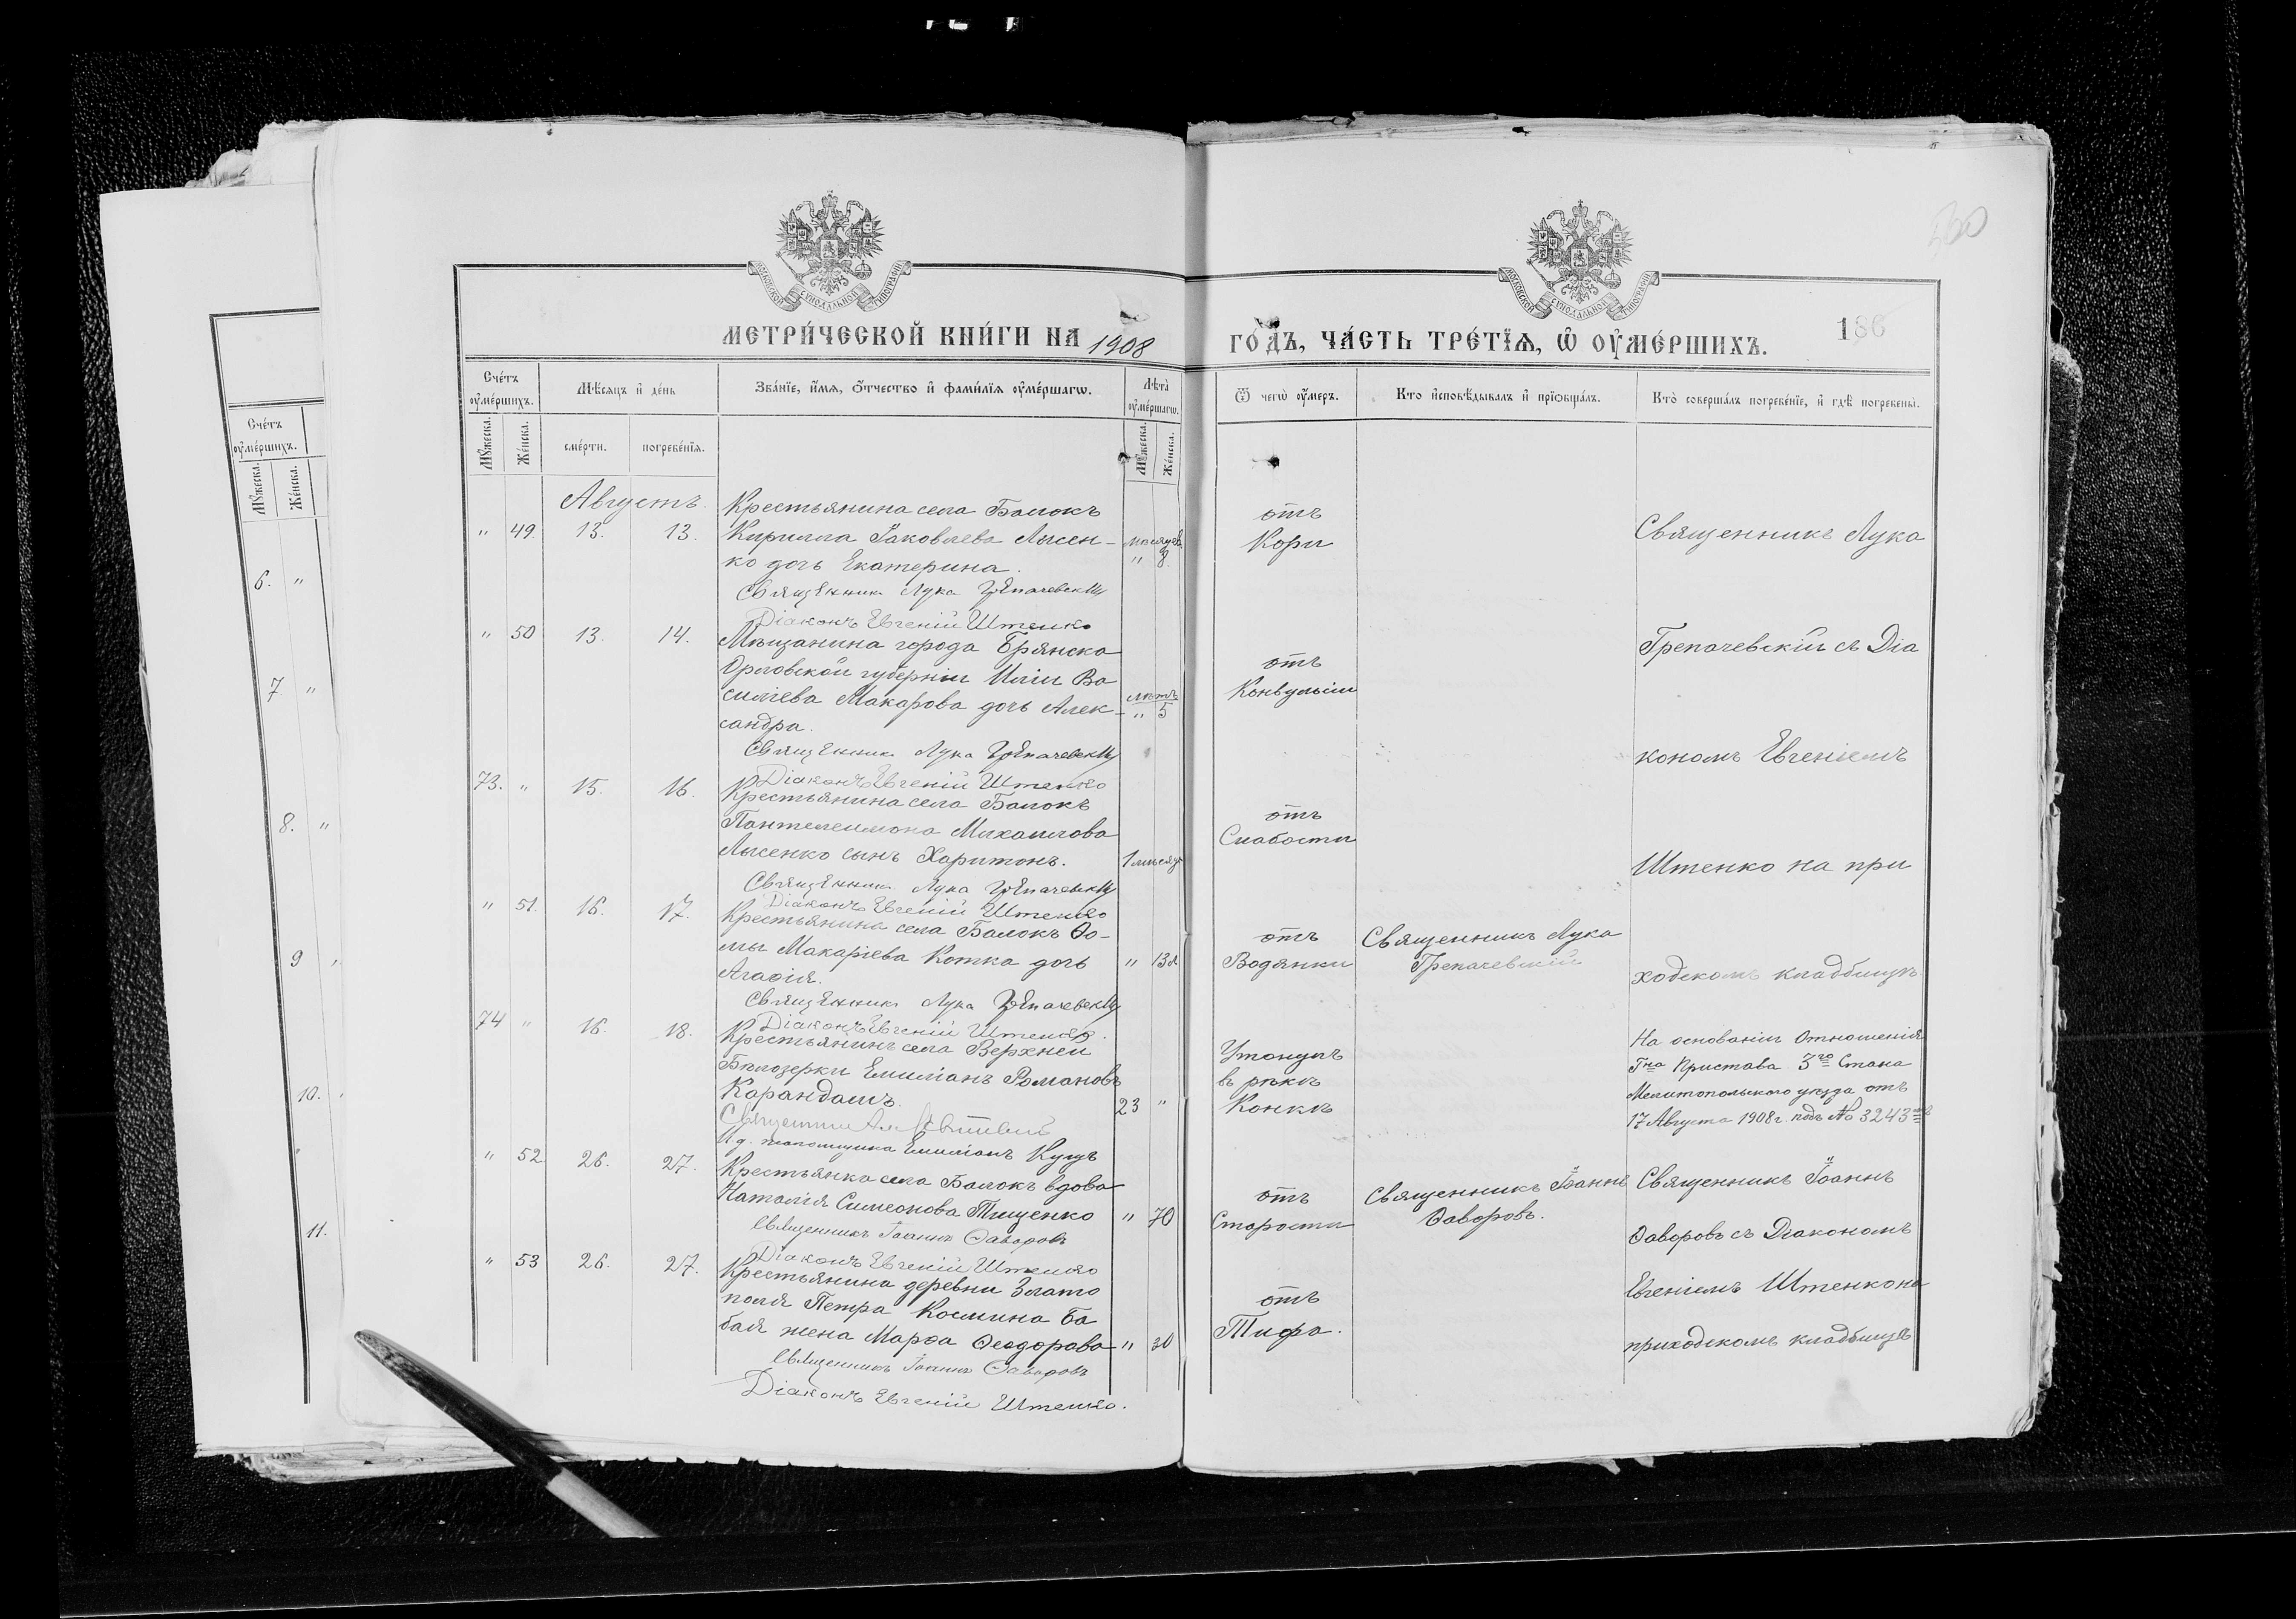 МОСКОВСКОЙ СѴНОДАЛЬНОЙ ТИПОГРАФІИ
МОСКОВСКОЙ СѴНОДАЛЬНОЙ ТИПОГРАФІИ
МЕТРИ́ЧЕСКОЙ КНИ́ГИ НА 1908 ГО́ДЪ, ЧА́СТЬ ТРЕ́ТЇѦ, Ѿ ОУ҆МЕ́РШИХЪ.
186
Сче́тъ оу҆ме́ршихъ.
Мѣ́сяцъ и҆ де́нь
Зва́нїе, и҆́мѧ, о҆́тчество и҆ фами́лїѧ оу҆ме́ршагѡ.
Лѣта̀ оу҆ме́ршагѡ.
Ѿ чегѡ̀ оу҆́меръ.
Кто̀ и҆сповѣ́дывалъ и҆ прїѡбща́лъ.
Кто̀ соверша́лъ погребе́нїе, и҆ гдѣ̀ погребены̀.
Мꙋ́жеска.
Же́нска.
сме́рти.
погребе́нїѧ.
Мꙋ́жеска.
Же́нска.
Августъ.
" 49. 13. 13.
Крестьянина села Балокъ
Кирилла Іаковлева Лысен-
ко дочь Екатерина.
Священник Лука Грепачевскій
Діаконъ Евгеній Штенко
мѣсяцев
" 8.
отъ
Кори
Священникъ Лука
" 50 13. 14.
Мѣщанина города Брянска
Орловской губерніи Иліи Ва
силіева Макарова дочь Алек-
сандра.
Священник Лука Грепачевскій
Діаконъ Евгеній Штенко
лѣтъ
" 5
отъ
Конвульсіи
Грепачевскій съ Діа
кономъ Евгеніемъ
73. " 15. 16.
Крестьянина села Балокъ
Пантелеимона Михаилова
Лысенко сынъ Харитонъ.
Священник Лука Грепачевскій
Діаконъ Евгеній Штенко
1 мѣсяцъ
отъ
Слабости
Штенко на при
" 51. 16. 17.
Крестьянина села Балокъ Ѳо-
мы Макаріева Котка дочь
Агаѳія.
Священник Лука Грепачевскій
Діаконъ Евгеній Штенко
" 13
отъ
Водянки
Священникъ Лука
Грепачевскій
ходскомъ кладбищѣ
74 " 16. 18.
Крестьянинъ села Верхней
Бѣлозерки Емиліанъ Романовъ
Карандашъ.
Священник
Емиліанъ Куцъ
23 "
Утонулъ
въ рѣкѣ
Конкѣ
На основаніи Отношенія
Г-на Пристава 3го Стана
Мелитопольскаго уѣзда отъ
17 Августа 1908 г. подъ № 3243
" 52. 26. 27.
Крестьянка села Балокъ вдова
Наталія Симеонова Тищенко
Священникъ Іоаннъ Ѳаворовъ
Діаконъ Евгеній Штенко
" 70
отъ
Старости
Священникъ Іоаннъ
Ѳаворовъ.
Священникъ Іоаннъ
Ѳаворовъ съ Діакономъ
" 53 26. 27.
Крестьянина деревни Злато
поля Петра Космина Ба
бая жена Марѳа Ѳеодорова
Священникъ Іоаннъ Ѳаворовъ
Діаконъ Евгеній Штенко.
" 30
отъ
Тифа.
Евгеніемъ Штенко на
приходскомъ кладбищѣ
Сче́тъ
оу҆ме́ршихъ.
Мꙋ́жеска.
Же́нска.
6. "
7. "
8. "
9 "
10.
11.